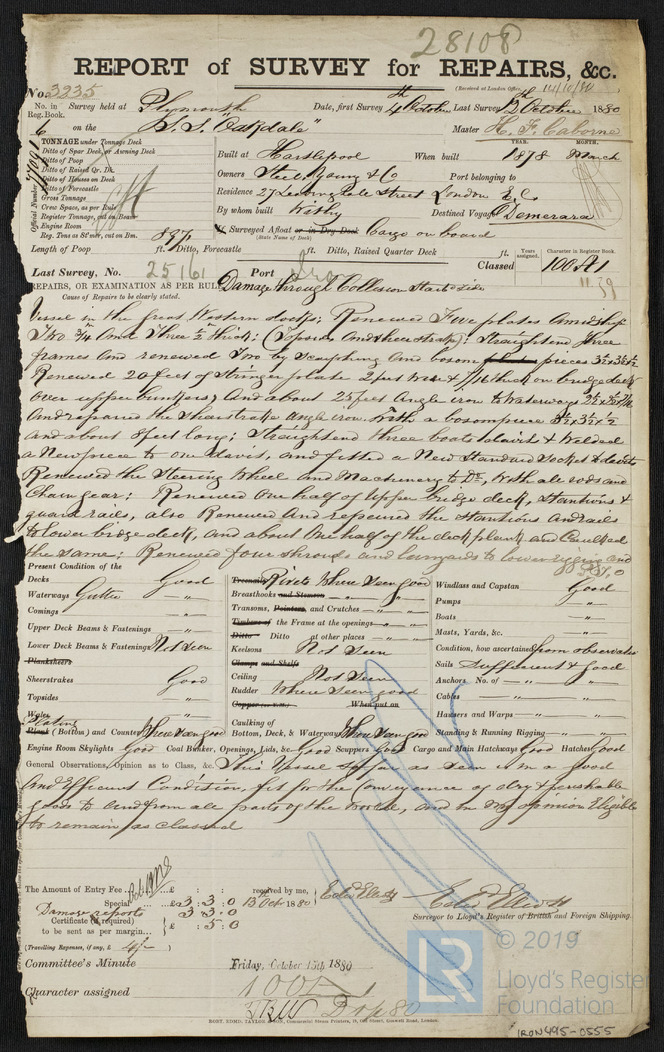 28108
REPORT of SURVEY for REPAIRS, &c.
(Received at London Office 14/10/80)
No. 3235
No. in Reg. Book. Survey held at Plymouth Date, first Survey 4th October Last Survey 13th October 1880
6 on the S.S. "Eskdale" Master H. F. Caborne
TONNAGE under Tonnage Deck
Ditto of Spar Deck, or Awning Deck
Ditto of Poop
Ditto of Raised Qr. Dk.
Ditto of Houses on Deck
Ditto of Forecastle
Gross Tonnage
Crew Space, as per Rule
Register Tonnage, cut on Beam
Engine Room
Reg. Tons as St'mer, cut on Bm.
Official Number
YEAR. MONTH.
Built at Hartlepool When built 1878 March
Owners & Co Port belonging to
Residence 27 Leadenhall Street London E.C.
By whom built Withy Destined Voyage Demerara
If Surveyed Afloat or in Dry Dock Cargo on board
(State Name of Dock)
Length of Poop ft. Ditto, Forecastle ft. Ditto, Raised Quarter Deck ft.
Years assigned. Character in Register Book.
Last Survey, No. 25161 Port Classed 100A1
11.79
REPAIRS, OR EXAMINATION AS PER RULE Damage through Collision Starbd side
Cause of Repairs to be clearly stated.
Vessel in the great Western docks; Renewed Five plates Amidship
Two 3/4 and Three 1/2 thick; (Topsides and sheerstrake); Straightend three
frames and renewed Two by scarphing and bosom pieces 3½x3½x½
Renewed 20 feet of Stringer plate 2 feet wide & 7/16 thick on bridge deck
over upper bunkers; and about 25 feet Angle iron to Waterways
and repaired the Shearstrake angle iron with a bosom piece 3½x3½x½
and about 8 feet long; Straightend three boats davits & Welded
a New piece to one davit, and fitted a New Standard Socket to davits
Renewed the Steering Wheel and Machinery to Do, With all rods and
Chain gear; Renewed One half of Upper bridge deck, Stantions &
guard rails, also Renewed and repaired the stantions and rails
to lower bridge deck, and about One half of the deck plank and Caulked
the same; Renewed four shrouds and lanyards to lower rigging and
P.T.O
Present Condition of the
Decks Good
Waterways Gutter "
Comings "
Upper Deck Beams & Fastenings "
Lower Deck Beams & Fastenings Not seen
Planksheers
Sheerstrakes Good
Topsides "
Wales
Plating
Plank (Bottom) and Counter Where seen good
Treenails Rivets Where seen good
Breasthooks and Stemson "
Transoms, Pointers, and Crutches "
Timbers of the Frame at the openings "
Ditto Ditto at other places "
Keelsons Not seen
Clamps and Shelfs
Ceiling Not seen
Rudder Where seen good
Copper (or Y.M.) When put on
Caulking of
Bottom, Deck, & Waterways Where seen good
Windlass and Capstan Good
Pumps "
Boats "
Masts, Yards, &c. "
Condition, how ascertained from observation
Sails Sufficient & good
Anchors No. of "
Cables "
Hawsers and Warps "
Standing & Running Rigging "
Engine Room Skylights Good Coal Bunker, Openings, Lids, &c. Good Scuppers Good Cargo and Main Hatchways Good Hatches Good
General Observations, Opinion as to Class, &c. This Vessel so far as seen is in a good
and Efficient Condition, fit for the Conveyance of dry & perishable
goods to and from all parts of the World, and in my opinion Eligible
to remain as classed
The Amount of Entry Fee £ : : received by me,
Special £ 3 : 3 : 0 13th Oct 1880
Damage reports 3 3 : 0
Certificate (if required) £ : 5 : 0
to be sent as per margin
(Travelling Expenses, if any, £ 4/- )
Surveyor to Lloyd's Register of British and Foreign Shipping.
Committee's Minute Friday, October 15th 1880
Character assigned 100A1
© 2019
LR
Lloyd's Register
Foundation
IRON495-0555